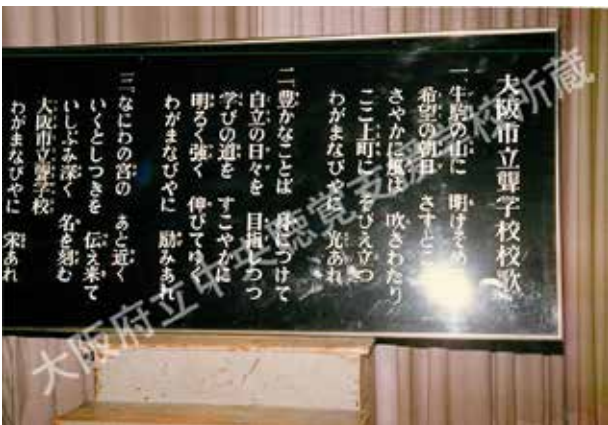 大阪市立聾学校校歌
一、生駒の山に 明けそめ
希望の朝日 さすとこ
さやかに風は 吹きわたり
ここ上町に そびえ立つ
わがまなびやに 光あれ
二、豊かなことば 身につけて
自立の日々を 目指しつつ
学びの道を すこやかに
明るく強く 伸びてゆく
わがまなびやに 励みあれ
三、なにわの宮の あと近く
いくとしつきを 伝え来て
いしぶみ深く 名を刻む
大阪市立聾学校
わがまなびやに 栄あれ
大阪府立中央聴覚支援学校所蔵